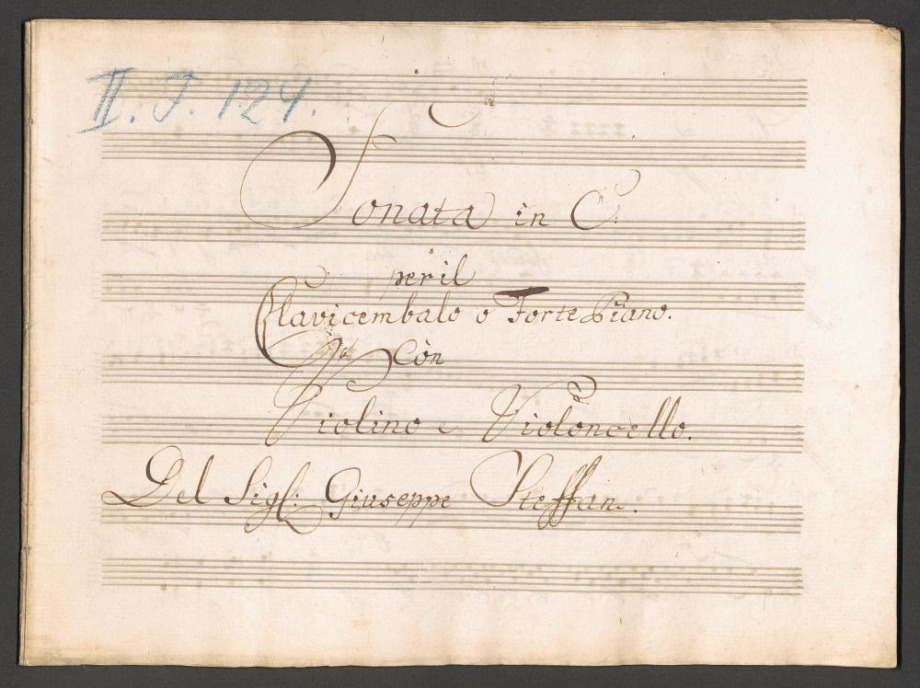 II. J. 124.
Sonata in C.
per il
Clavicembalo o Forte Piano.
Còn
Violino e Violoncello.
Del Sigl: Giuseppe Steffan.